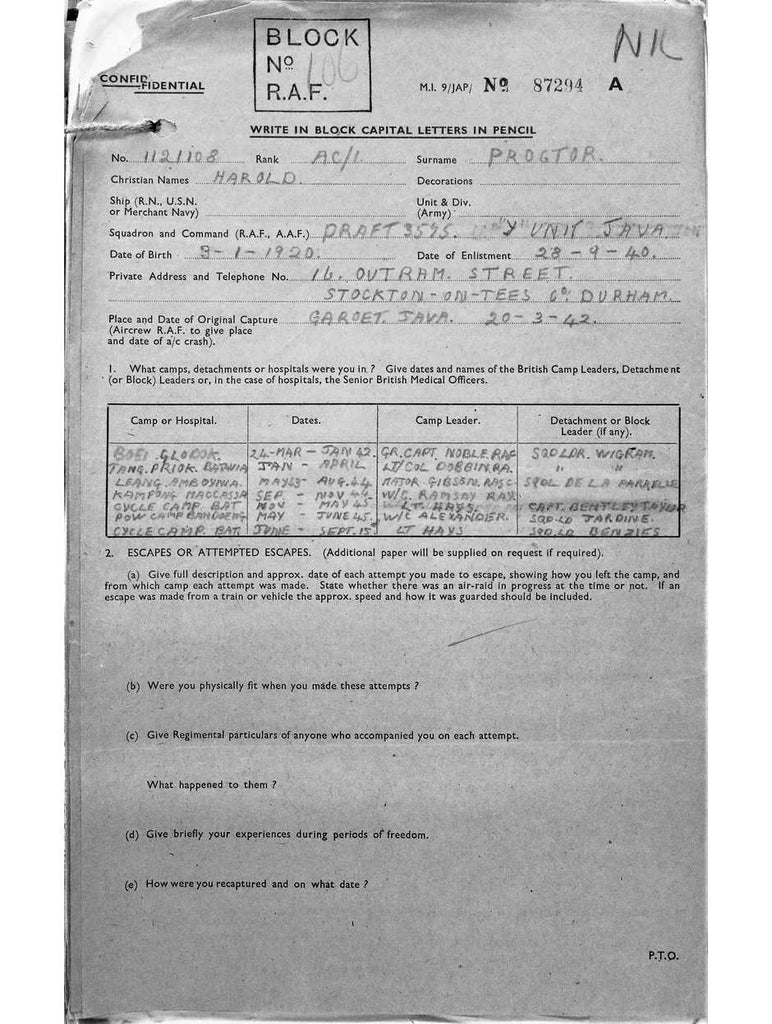 NK
BLOCK
No 106
R.A.F.
CONFIDENTIAL
M.I. 9/JAP/ No 87294 A
WRITE IN BLOCK CAPITAL LETTERS IN PENCIL
No. 1121108 Rank AC/1. Surname PROCTOR.
Christian Names HAROLD. Decorations
Ship (R.N., U.S.N. or Merchant Navy) Unit & Div. (Army)
Squadron and Command (R.A.F., A.A.F.) DRAFT 3595. "Y" UNIT JAVA
Date of Birth 3-1-1920. Date of Enlistment 28-9-40.
Private Address and Telephone No. 16. OUTRAM. STREET.
STOCKTON-ON-TEES Co. DURHAM.
Place and Date of Original Capture GAROET. JAVA. 20-3-42.
(Aircrew R.A.F. to give place
and date of a/c crash).
1. What camps, detachments or hospitals were you in ? Give dates and names of the British Camp Leaders, Detachment
(or Block) Leaders or, in the case of hospitals, the Senior British Medical Officers.
Camp or Hospital. Dates. Camp Leader. Detachment or Block Leader (if any).
BOEI GLODOK. 24-MAR - JAN 42. GR. CAPT. NOBLE. RAF SQD LDR. WIGRAM.
TANG. PRIOK. BATAVIA JAN - APRIL LT/COL DOBBIN RA. " "
LEANG AMBOYNA. MAY43- AUG.44 MAJOR GIBSON. RASC. SQDL DE LA
KAMPONG MACCASSA SEP. - NOV 44. W/C. RAMSAY RAY.
CYCLE CAMP. BAT. NOV - MAY 45. LT. HAYS. CAPT. BENTLEY TAYLOR
POW CAMP BANDOENG MAY - JUNE 45. W/C ALEXANDER. SQD-LD JARDINE.
CYCLE CAMP. BAT. JUNE - SEPT. 15 LT HAYS SQD-LD BENZIES
2. ESCAPES OR ATTEMPTED ESCAPES. (Additional paper will be supplied on request if required).
(a) Give full description and approx. date of each attempt you made to escape, showing how you left the camp, and
from which camp each attempt was made. State whether there was an air-raid in progress at the time or not. If an
escape was made from a train or vehicle the approx. speed and how it was guarded should be included.
(b) Were you physically fit when you made these attempts ?
(c) Give Regimental particulars of anyone who accompanied you on each attempt.
What happened to them ?
(d) Give briefly your experiences during periods of freedom.
(e) How were you recaptured and on what date ?
P.T.O.